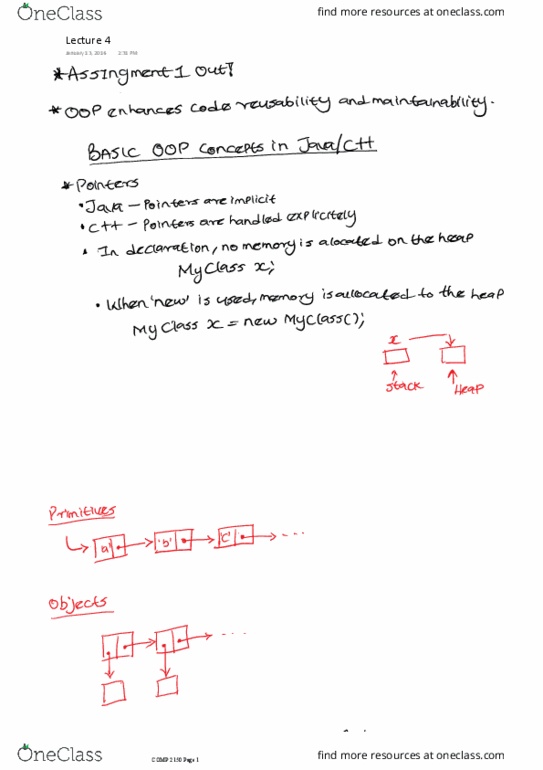 OneClass
find more resources at oneclass.com
Lecture 4
January 23, 2018 2:31 PM
*Assingment 1 Out!
* OOP enhances code reusability and maintainability.
BASIC OOP Concepts in Java/C++
* Pointers
• Java – Pointers are implicit
• C++ – Pointers are handled explicitely
• In declaration, no memory is alocated on the heap
MyClass x;
• When 'new' is used, memory is allocated to the heap
MyClass x = new MyClass();
x
Stack
Heap
Primitives
'a' 'b' 'c' ...
Objects
...
OneClass
COMP 2150 Page 1
find more resources at oneclass.com